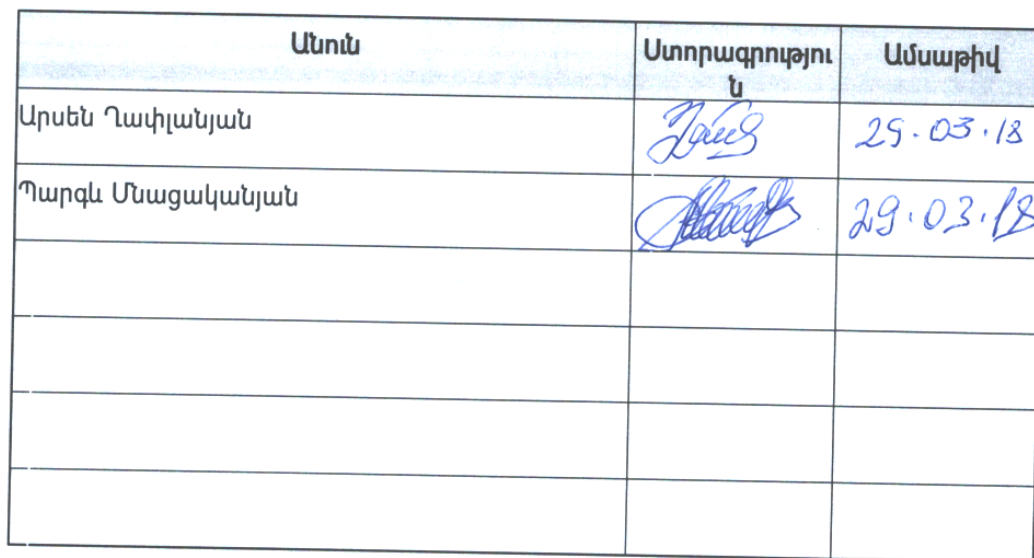 Անուն Ստորագրությու Ամսաթիվ
ն
Արսեն Ղափլանյան 29.03.18
Պարգև Մնացականյան 29.03.18